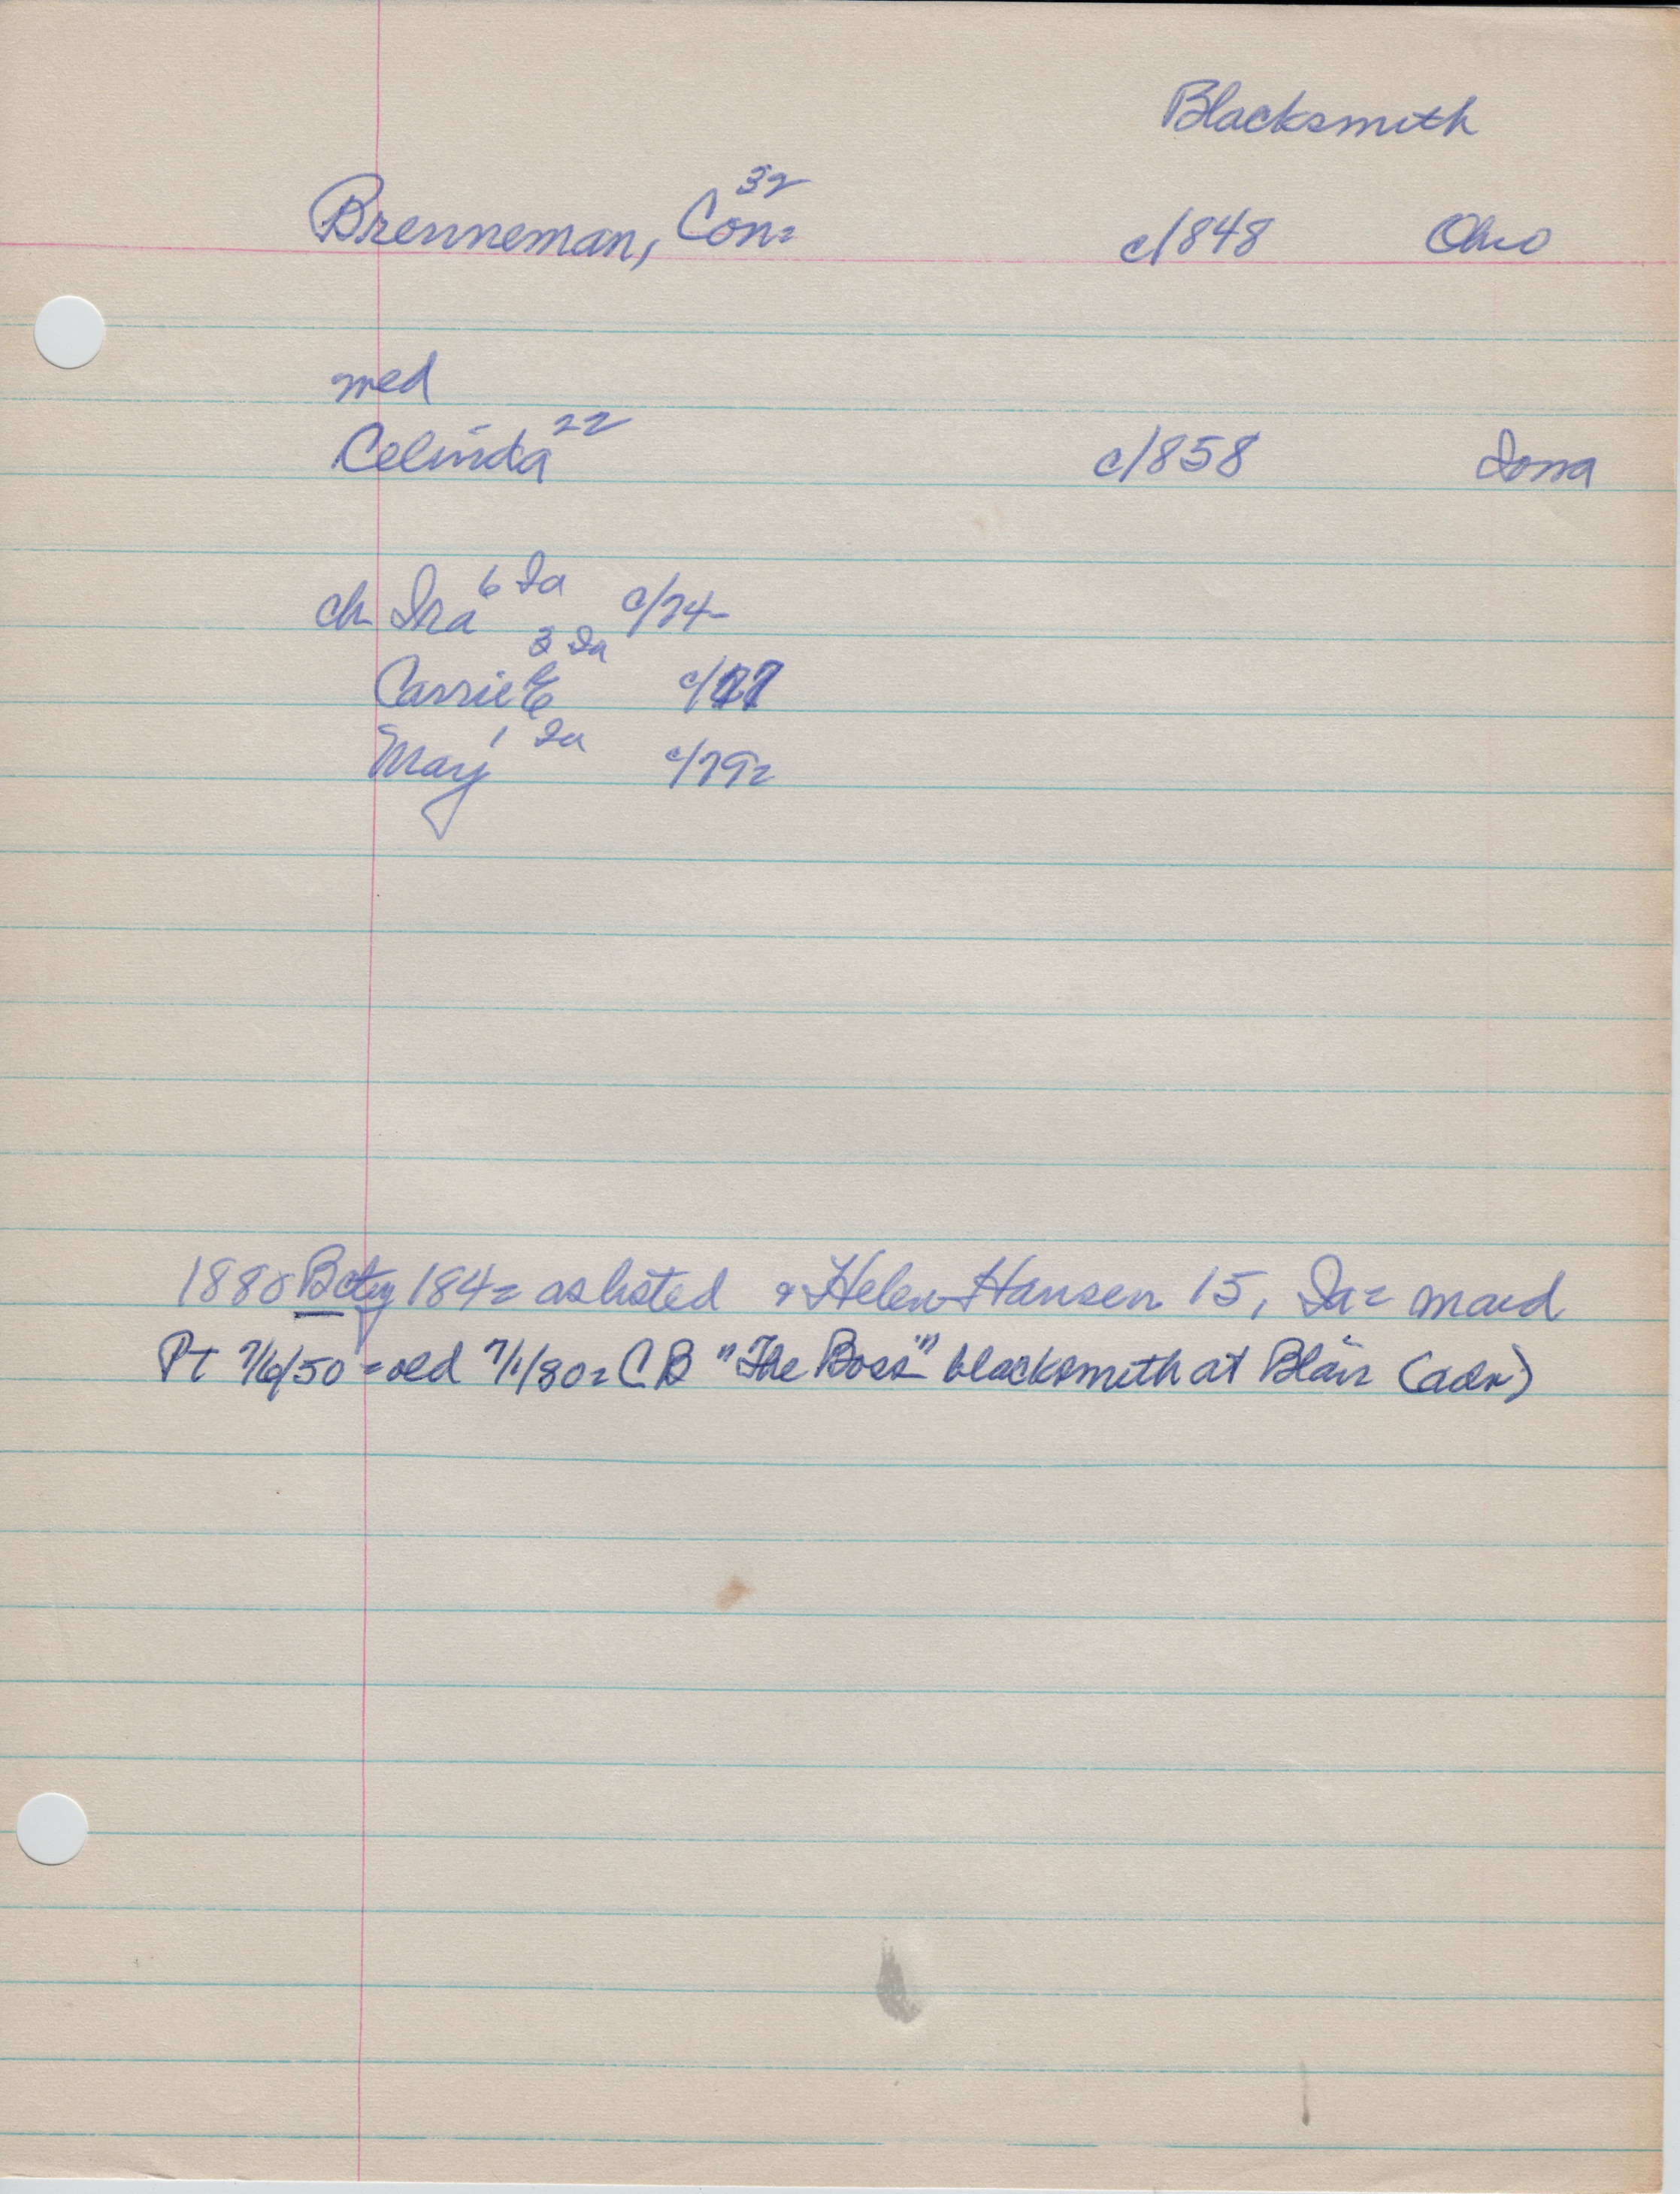 Blacksmith
Brenneman, Con= 32 c1848 Ohio
med
Celinda 22 c1858 Iowa
ch Ira 6 Ia c/74-
Carrie E 3 Ia c/77
May 1 Ia c/79=
1880 Bcty 184= as listed & Helen Hansen 15, Ia= maid
Pt 7/6/50 = old 7/1/80= C B "The Boss" blacksmith at Blair (adv)